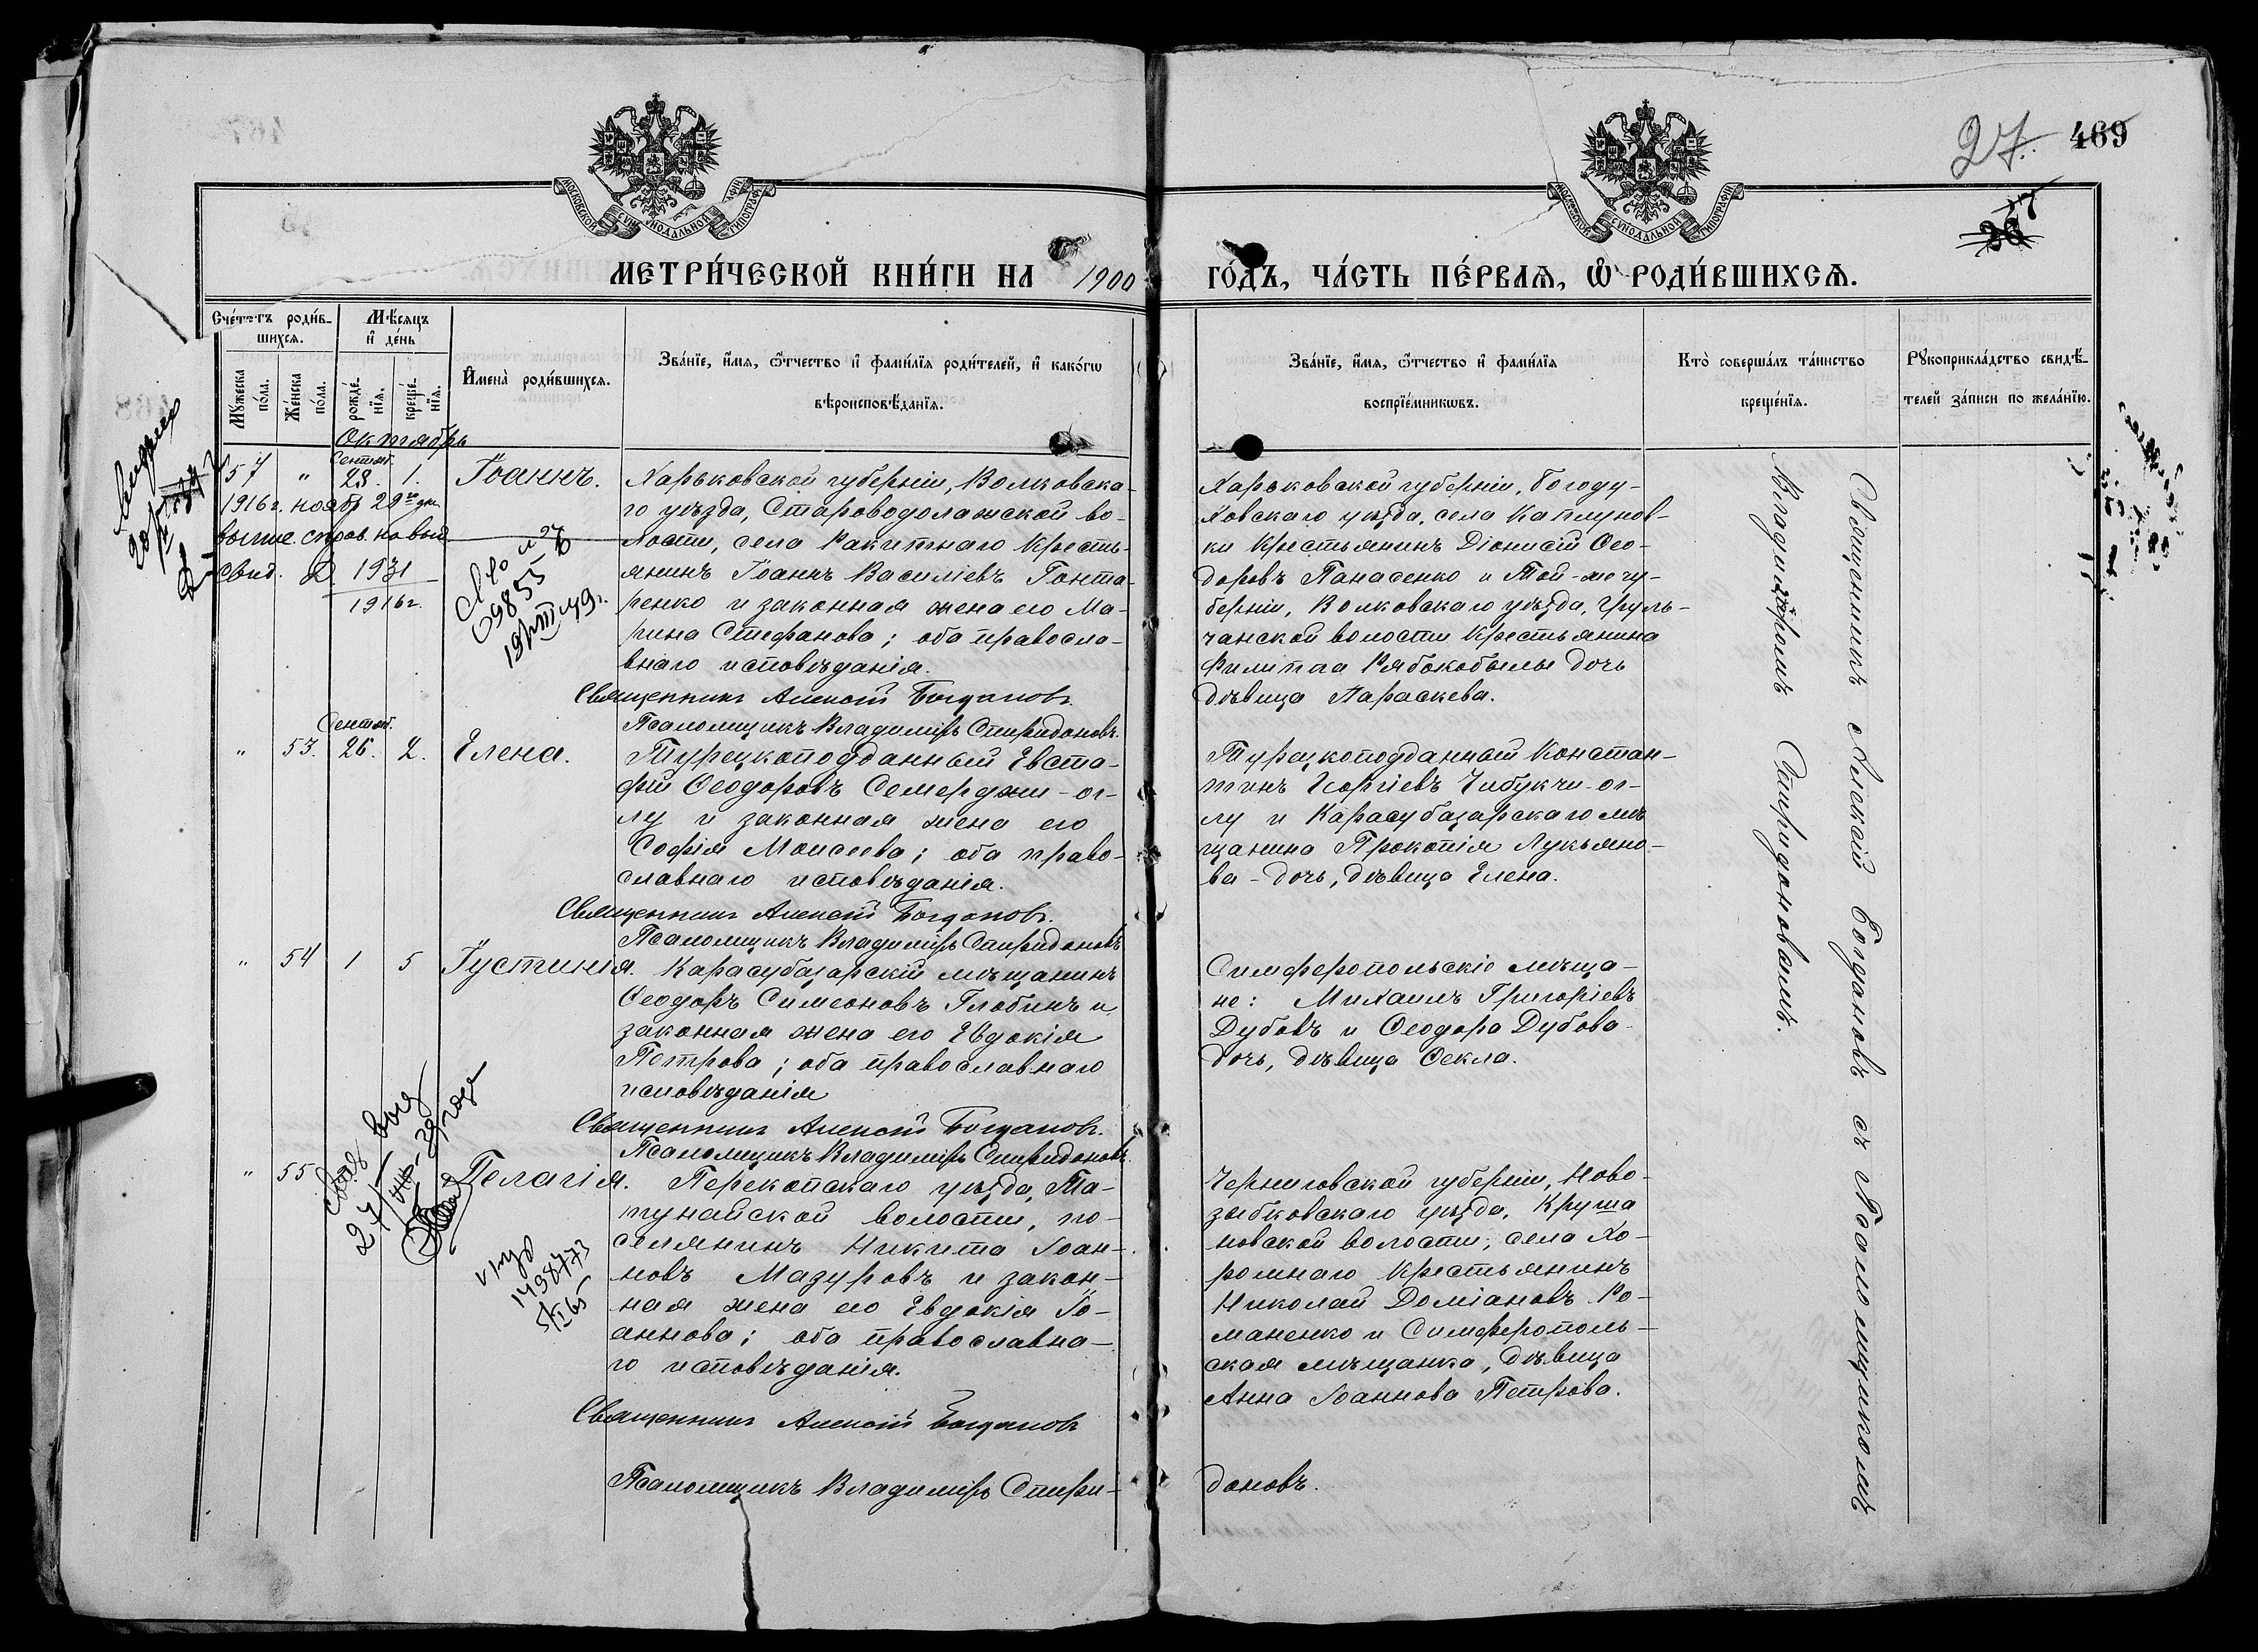 27. 469
МОСКОВСКОЙ СУНОДАЛЬНОЙ ТИПОГРАФІИ
МОСКОВСКОЙ СУНОДАЛЬНОЙ ТИПОГРАФІИ
МЕТРИ́ЧЕСКОЙ КНИ́ГИ НА 1900 ГО́ДЪ, ЧА́СТЬ ПЕ́РВАѦ, Ѡ РОДИ́ВШИХСѦ.
Сче́тъ роди́в-
шихсѧ.
Мꙋ́жеска по́ла.
Же́нска по́ла.
Мѣ́сѧцъ и҆ де́нь
рожде́-нїѧ.
креще́-нїѧ.
И҆мена̀ роди́вшихсѧ.
Зва́нїе, и҆́мѧ, ѻ҆́тчество и҆ фами́лїѧ роди́телей, и҆ како́гѡ
вѣроисповѣ́данїѧ.
Зва́нїе, и҆́мѧ, ѻ҆́тчество и҆ фами́лїѧ
воспрїе́мникѡвъ.
Кто̀ соверша́лъ та́инство
креще́нїѧ.
Рꙋкоприкла́дство свидѣ́-
телей за́писи по жела́нїю.
Октябрь
57 " Сентяб. 28. 1. Іоаннъ.
1916 г. нояб 29го дня
новый
свид. 1931
1916 г.
09855
Харьковской губерніи, Волковска-
го уѣзда, Староводолажской во-
лости, села Ракитнаго крестья-
янинъ Іоаннъ Василіевъ Гонта-
ренко и законная жена его Ма-
рина Стефанова; оба правосла-
внаго исповѣданія.
Священникъ Алексій Богдановъ.
Псаломщикъ Владиміръ Спиридоновъ.
Харьковской губерніи, Богоду-
ховскаго уѣзда, села Каплунов-
ки крестьянинъ Діонисій Ѳео-
доровъ Панасенко и той-же гу-
берніи, Волковскаго уѣзда,
чанской волости крестьянина
Филиппа Рябокобылы дочь
дѣвица Параскева.
" 53. Сентяб. 26. 2. Елена.
Турецкоподданный Евста-
фій Ѳеодоровъ Семерджи-ог-
лу и законная жена его
Софія Моисеева; оба право-
славнаго исповѣданія.
Священникъ Алексій Богдановъ.
Псаломщикъ Владиміръ Спиридоновъ
Турецкоподданный Констан-
тинъ Георгіевъ Чибукчи-ог-
лу и Карасубазарскаго мѣ
щанина Прокопія Лукьяно-
ва - дочь, дѣвица Елена.
" 54 1 5 Іустинія.
Карасубазарскій мѣщанинъ
Ѳеодоръ Симеоновъ Глобинъ и
законная жена его Евдокія
Петрова; оба православнаго
исповѣданія
Священникъ Алексій Богдановъ.
Псаломщикъ Владиміръ Спиридоновъ.
Симферопольскіе мѣща-
не: Михаилъ Григоріевъ
Дубовъ и Ѳеодора Дубова
дочь, дѣвица Ѳекла.
" 55 Пелагія.
Перекопскаго уѣзда, Та-
гунайской волости, по-
селянинъ Никита Іоан-
новъ Мазуровъ и закон-
ная жена его Евдокія Іо-
аннова; оба православна-
го исповѣданія.
Священникъ Алексій Богдановъ
Псаломщикъ Владиміръ Спири-
доновъ.
Черниговской губерніи, Ново-
зыбковскаго уѣзда, Круша
новской волости, села Хо-
ромнаго крестьянинъ
Николай Доміановъ Ро-
маненко и Симферополь-
ская мѣщанка, дѣвица
Анна Іоаннова Петрова.
Священникъ Алексій Богдановъ съ Псаломщикомъ
Владиміромъ Спиридоновымъ.